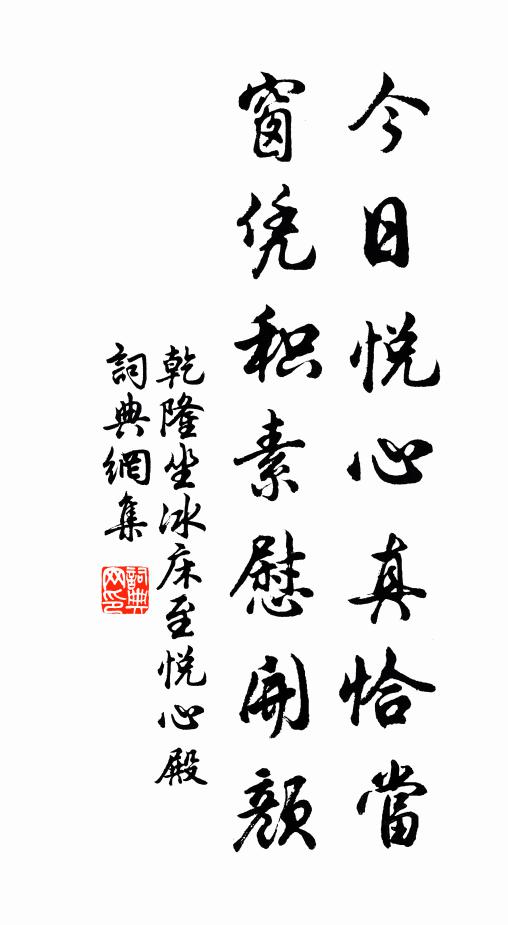 今日悦心真恰當
窗凭积素慰開顏
乾隆坐冰床至悦心殿
詞典網集
詞典网印